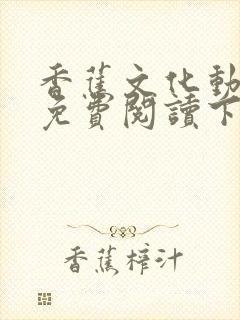 香蕉文化動
免費閱讀下
香蕉榨汁